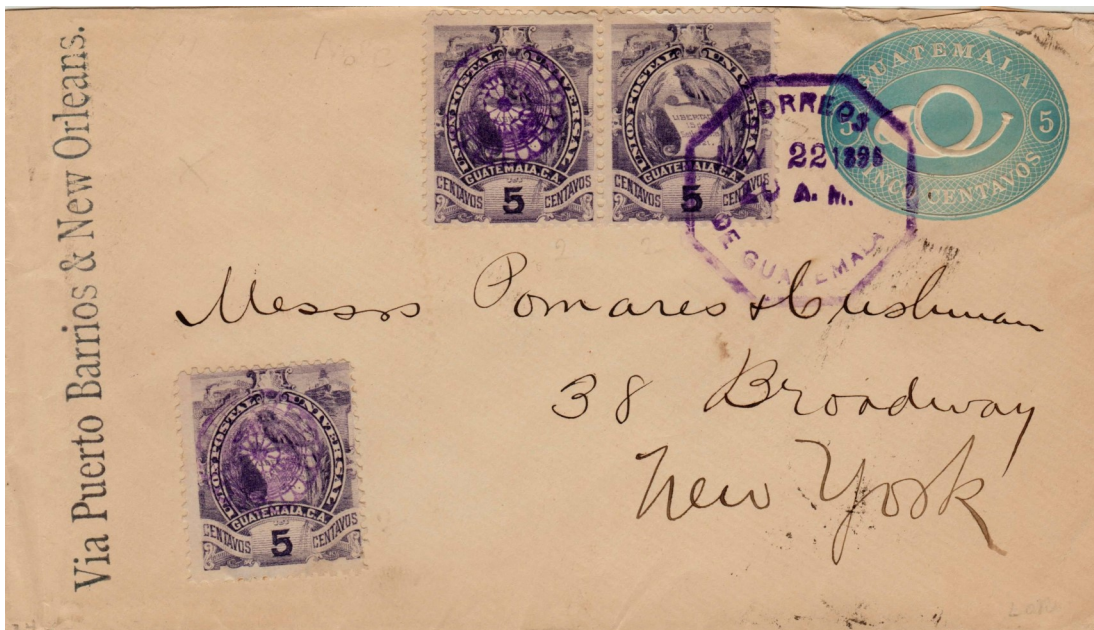 Via Puerto Barrios & New Orleans.
UNION POSTAL UNIVERSAL
GUATEMALA, C.A.
CENTAVOS 5 CENTAVOS
UNION POSTAL UNIVERSAL
LIBERTAD
GUATEMALA, C.A.
CENTAVOS 5 CENTAVOS
GUATEMALA
5 5
CINCO CENTAVOS
CORREOS
MAY 22 1896
A.M.
DE GUATEMALA
Messrs Pomares & Cushman
38 Broadway
New York
UNION POSTAL UNIVERSAL
GUATEMALA, C.A.
CENTAVOS 5 CENTAVOS